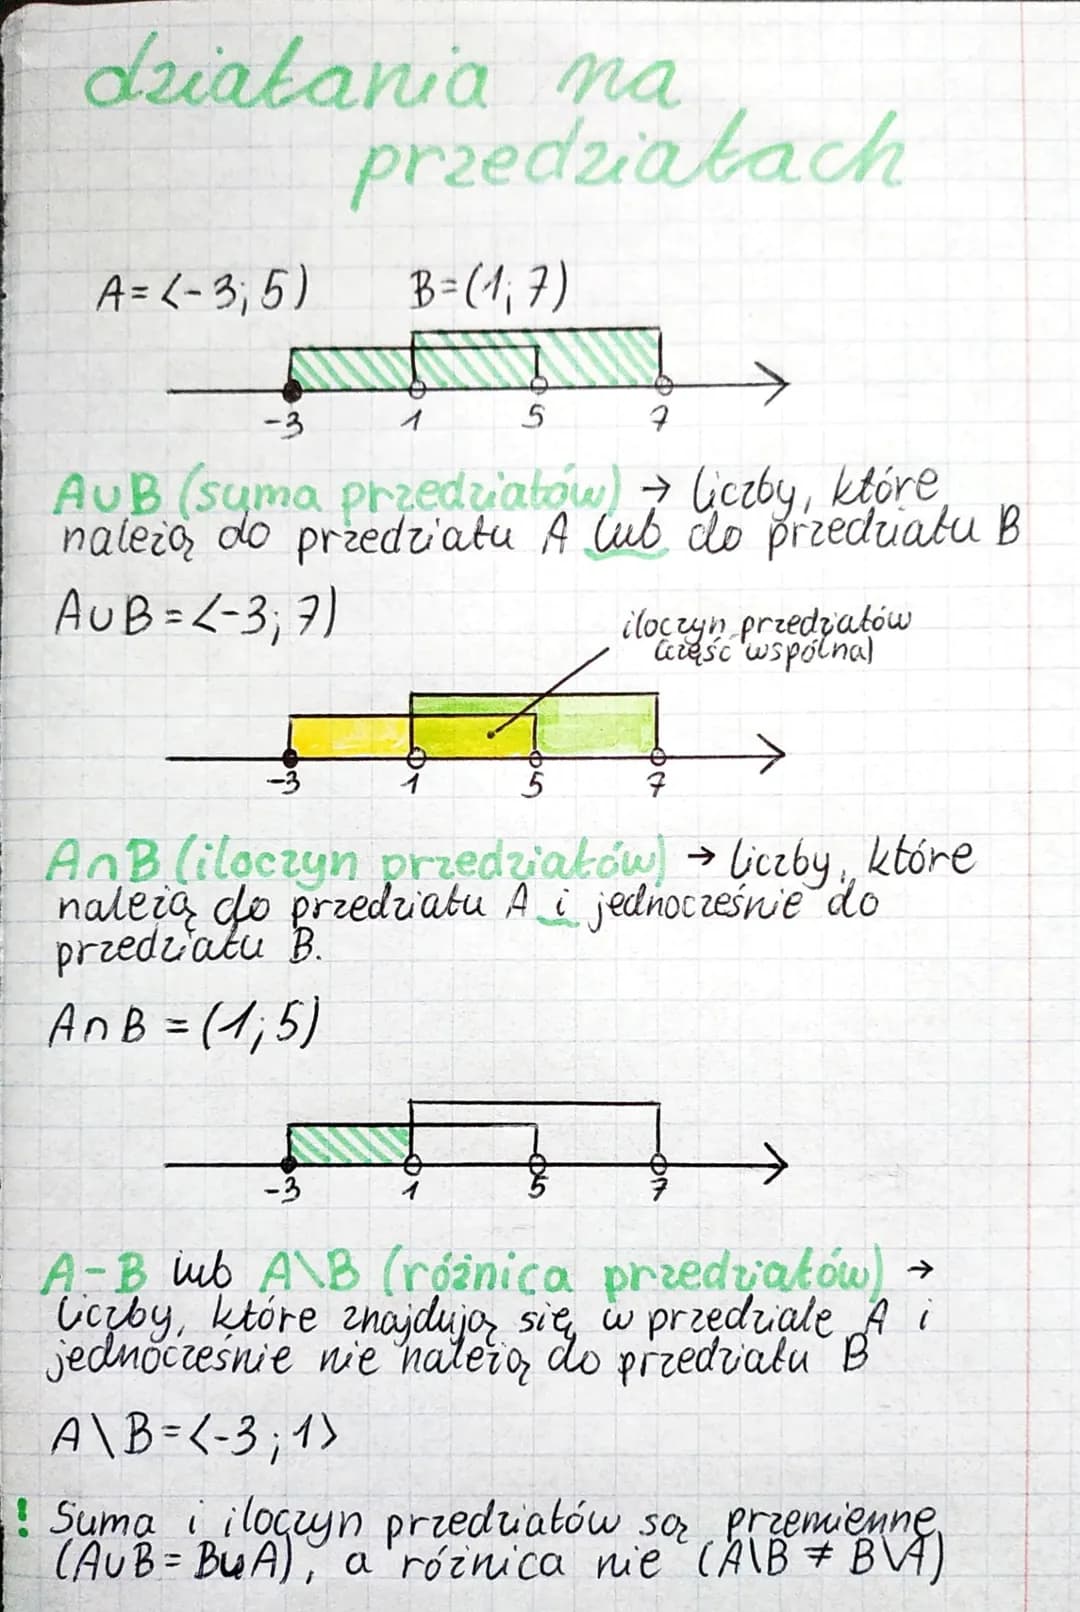 działania na
przedziałach
A=<-3;5) B=(1;7)
-3 1 5 7
A∪B (suma przedziałów) → liczby, które
należą do przedziału A lub do przedziału B
A∪B=<-3;7)
iloczyn przedziałów
(część wspólna)
-3 1 5 7
A∩B (iloczyn przedziałów) → liczby, które
należą do przedziału A i jednocześnie do
przedziału B.
A∩B=(1;5)
-3 1 5 7
A-B lub A\B (różnica przedziałów) →
liczby, które znajdują się w przedziale A i
jednocześnie nie należą do przedziału B
A\B=<-3;1>
! Suma i iloczyn przedziałów są przemienne
(A∪B=B∪A), a różnica nie (A\B≠B\A)